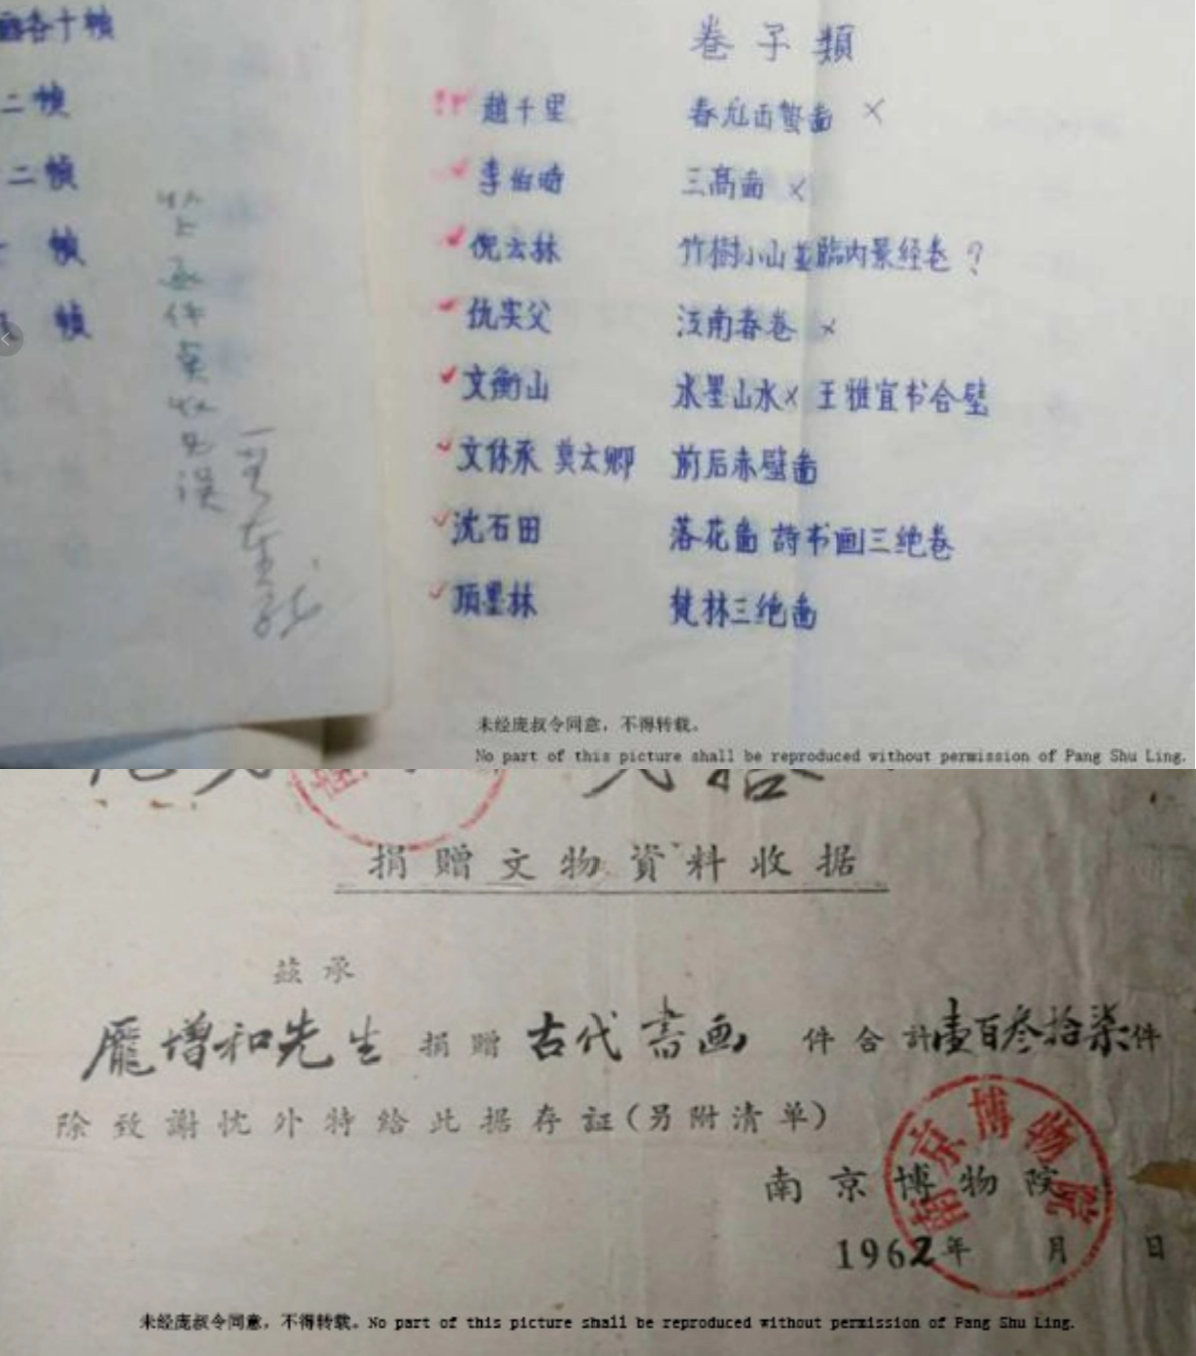 各十幀
二幀
二幀
幀
幀
卷子類
趙千里 春龙击蟄啚 ×
李伯時 三高啚 ×
倪云林 竹樹小山並臨内景经卷 ?
仇实父 江南春卷 ×
文衡山 水墨山水× 王雅宜书合璧
文休承 莫云卿 前后赤壁啚
沈石田 落花啚 詩书画三绝卷
项墨林 梵林三绝啚
未经庞叔令同意，不得转载。
No part of this picture shall be reproduced without permission of Pang Shu Ling.
捐贈文物資料收据
茲承
龐增和先生捐贈古代書画 件合計壹百叁拾柒件
除致謝忱外特給此据存証(另附清单)
南京博物院
南京博物院
1962年 月 日
未经庞叔令同意，不得转载。No part of this picture shall be reproduced without permission of Pang Shu Ling.